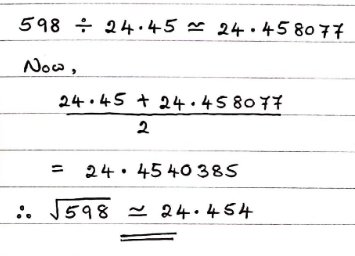 598 ÷ 24.45 ≃ 24.458077
Now,
24.45 + 24.458077
2
= 24.4540385
∴ √598 ≃ 24.454